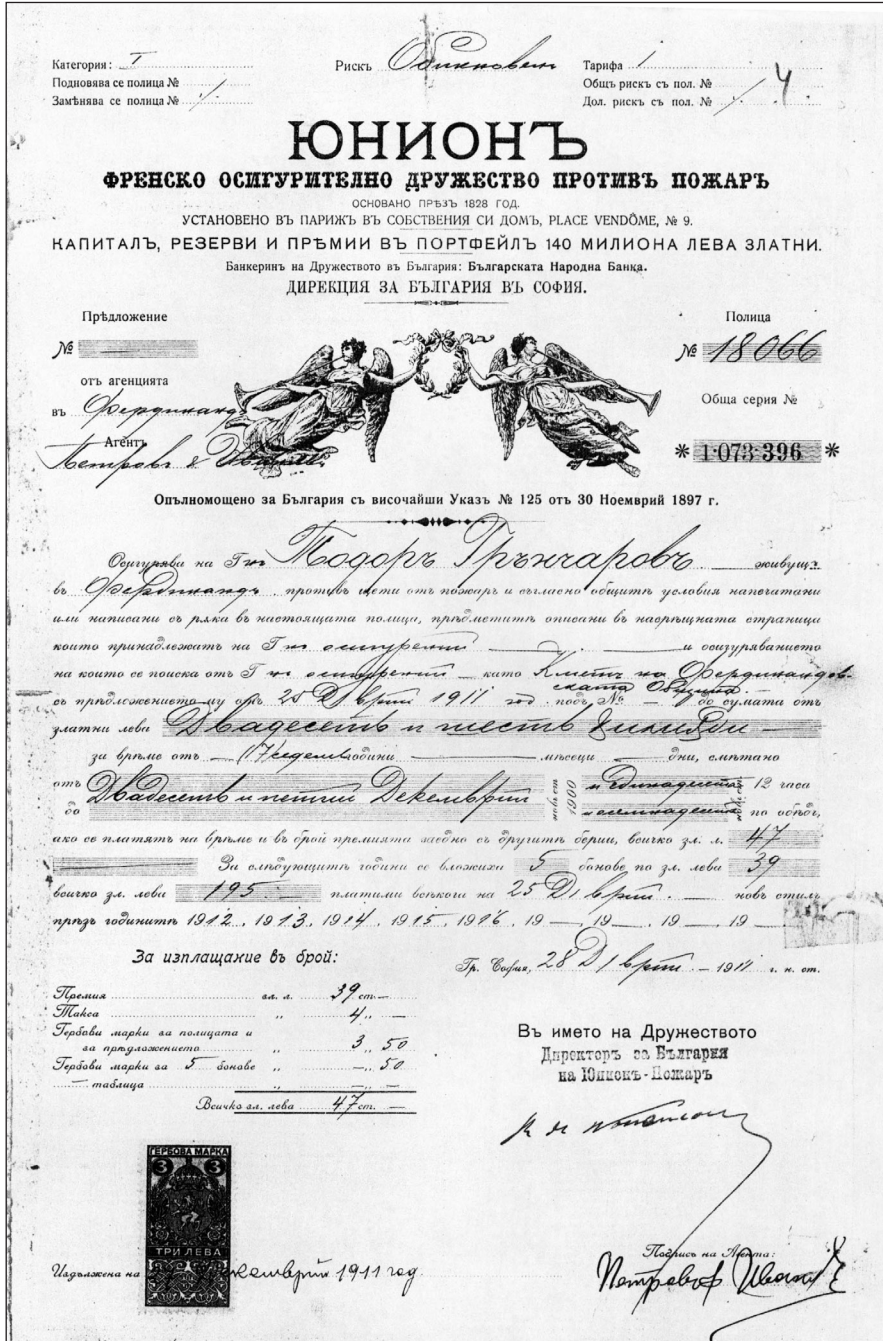 Категория: I Рискъ Обикновенъ Тарифа 1
Подновява се полица № Общъ рискъ съ пол. № 4
Замѣнява се полица № Дол. рискъ съ пол. №
ЮНИОНЪ
ФРЕНСКО ОСИГУРИТЕЛНО ДРУЖЕСТВО ПРОТИВЪ ПОЖАРЪ
ОСНОВАНО ПРѢЗЪ 1828 ГОД.
УСТАНОВЕНО ВЪ ПАРИЖЪ ВЪ СОБСТВЕНИЯ СИ ДОМЪ, PLACE VENDÔME, № 9.
КАПИТАЛЪ, РЕЗЕРВИ И ПРѢМИИ ВЪ ПОРТФЕЙЛЪ 140 МИЛИОНА ЛЕВА ЗЛАТНИ.
Банкеринъ на Дружеството въ България: Българската Народна Банка.
ДИРЕКЦИЯ ЗА БЪЛГАРИЯ ВЪ СОФИЯ.
Прѣдложение Полица
№ № 18066
отъ агенцията Обща серия №
въ Фердинандъ
Агентъ * 1·073·396 *
Петровъ &
Опълномощено за България съ височайши Указъ № 125 отъ 30 Ноемврий 1897 г.
Осигурява на Г-нъ Тодоръ Грънчаровъ живущъ
въ Фердинандъ противъ щети отъ пожаръ и съгласно общитѣ условия напечатани
или написани съ рѫка въ настоящата полица, прѣдметитѣ описани въ насрѣщната страница
които принадлежатъ на Г-нъ осигурений и осигуряванието
на които се поиска отъ Г-нъ осигурений като Кметъ на Фердинандов-
ската Община
съ прѣдложението му отъ 25 Д/врий 1911 год. подъ № — до сумата отъ
златни лева Двадесетъ и шестъ хиляди —
за врѣме отъ (7) седемь години — мѣсеци — дни, смѣтано
отъ Двадесеть и петий Декемврий 1900 и единадесета 12 часа
до и седемнадесета по обѣдъ,
ако се платятъ на врѣме и въ брой премията заедно съ другитѣ берии, всичко зл. л. 47
За слѣдующитѣ години се вложиха 5 бонове по зл. лева 39
всичко зл. лева 195 платими всѣкога на 25 Д/врий новъ стилъ
прѣзъ годинитѣ 1912, 1913, 1914, 1915, 1916, 19 — 19 — 19 — 19 —
За изплащание въ брой: Гр. София, 28 Д/врий — 1911 г. н. ст.
Премия зл. л. 39 ст. —
Такса „ 4 „ —
Гербови марки за полицата и
за прѣдложението 3 „ 50
Гербови марки за 5 бонове „ — „ 50
— таблица „ — „ —
Всичко зл. лева 47 ст. —
Въ името на Дружеството
Директоръ за България
на Юнионъ-Пожаръ
ГЕРБОВА МАРКА
3 3
ТРИ ЛЕВА
Издължена на 1911 год.
Подпись на Агента:
Петровъ